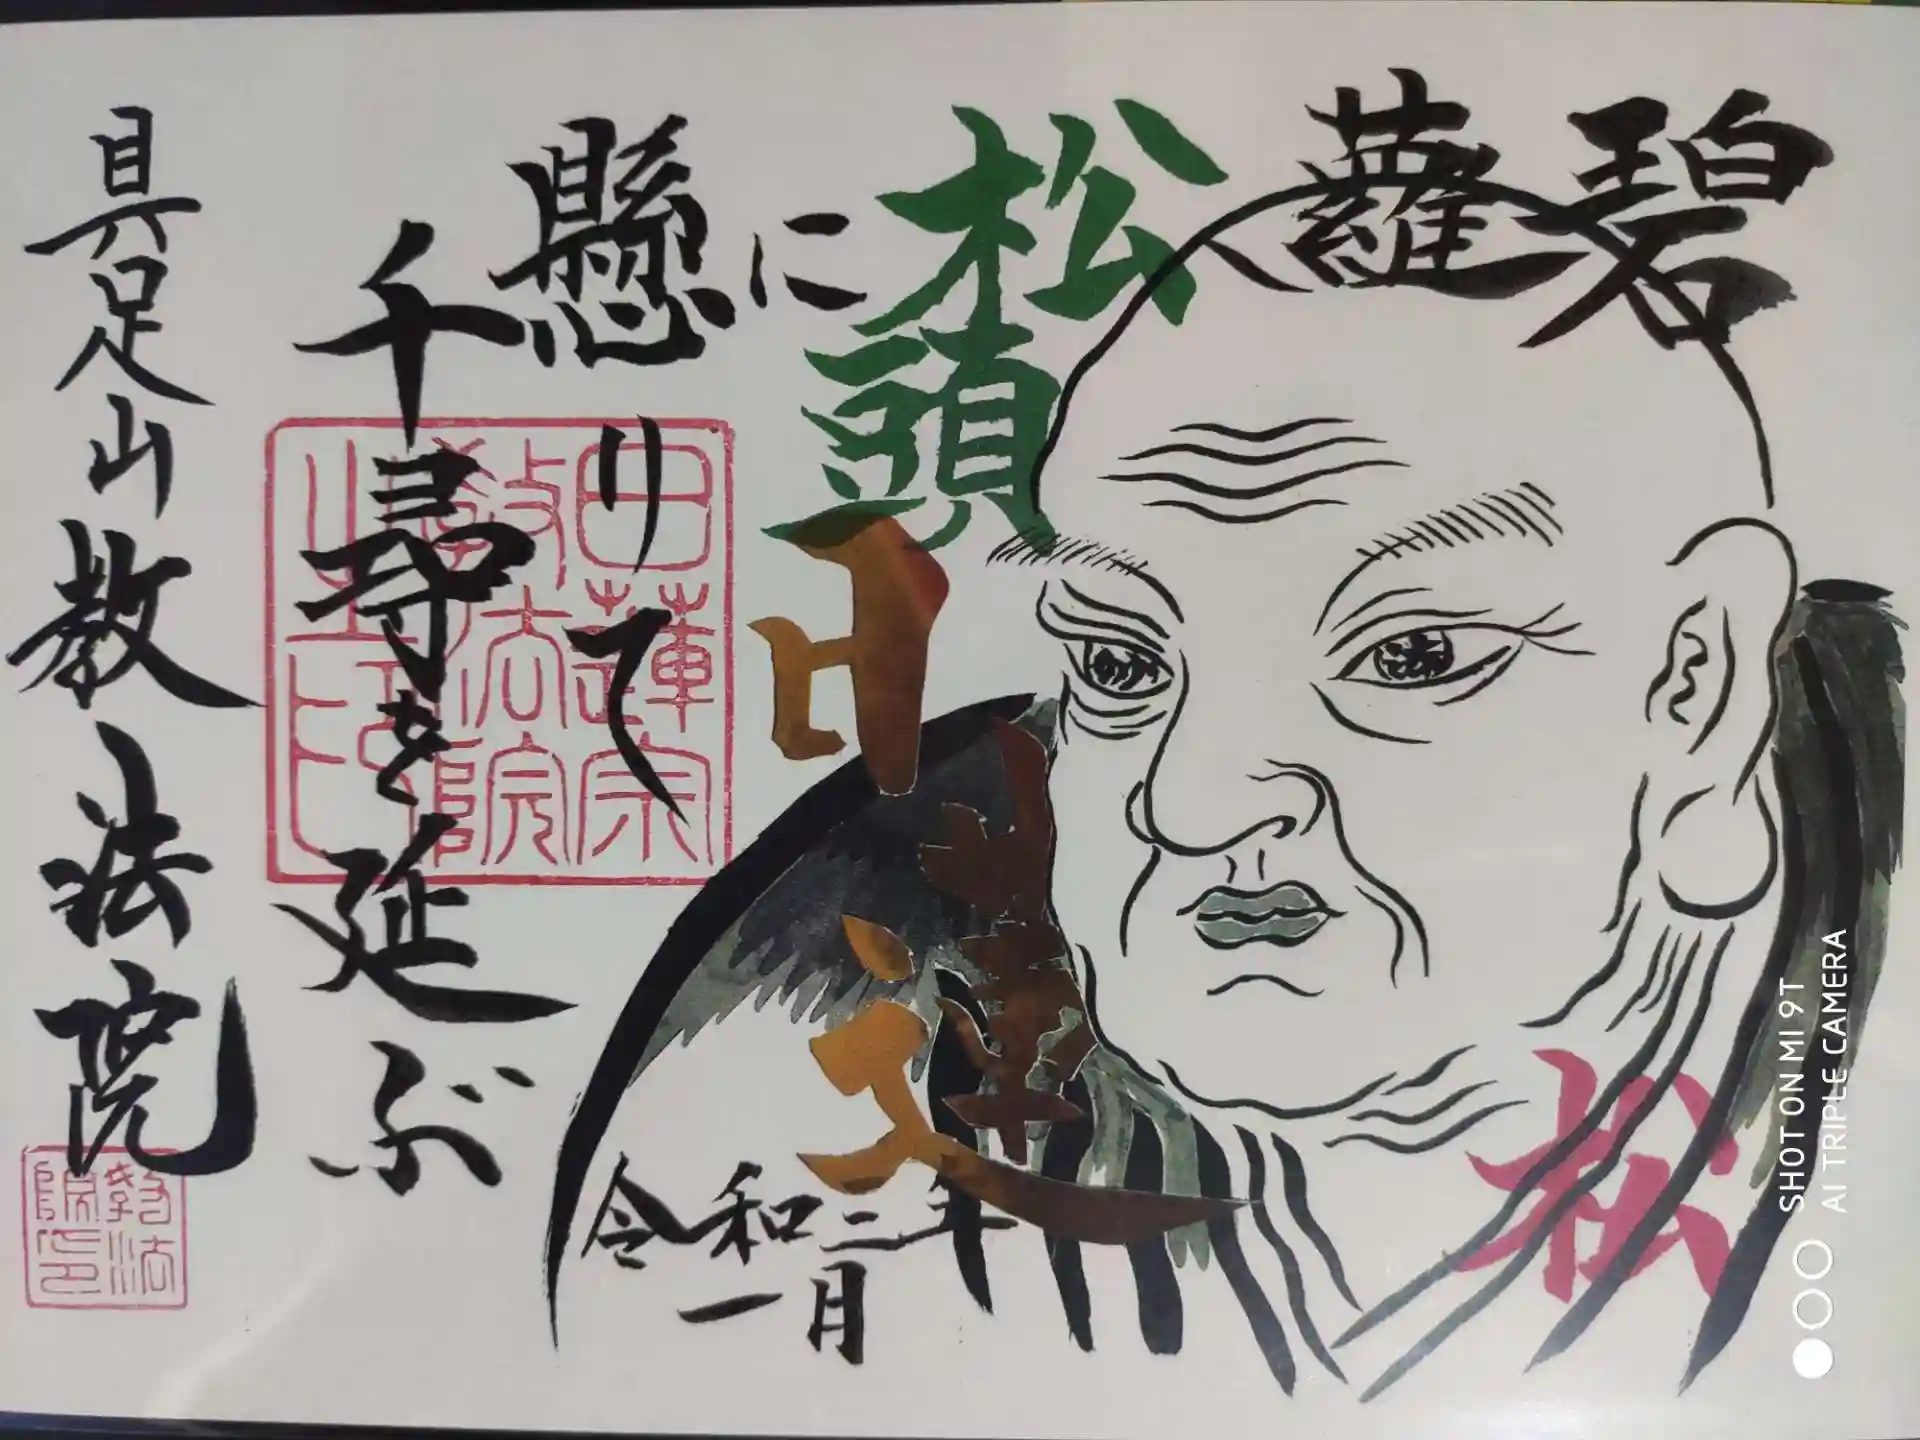 碧蘿
松頭
に
懸りて
千尋を延ぶ
日蓮
松
令和二年
一月
具足山教法院
日蓮宗
教法院
之印
教法
院印
SHOT ON MI 9T
AI TRIPLE CAMERA